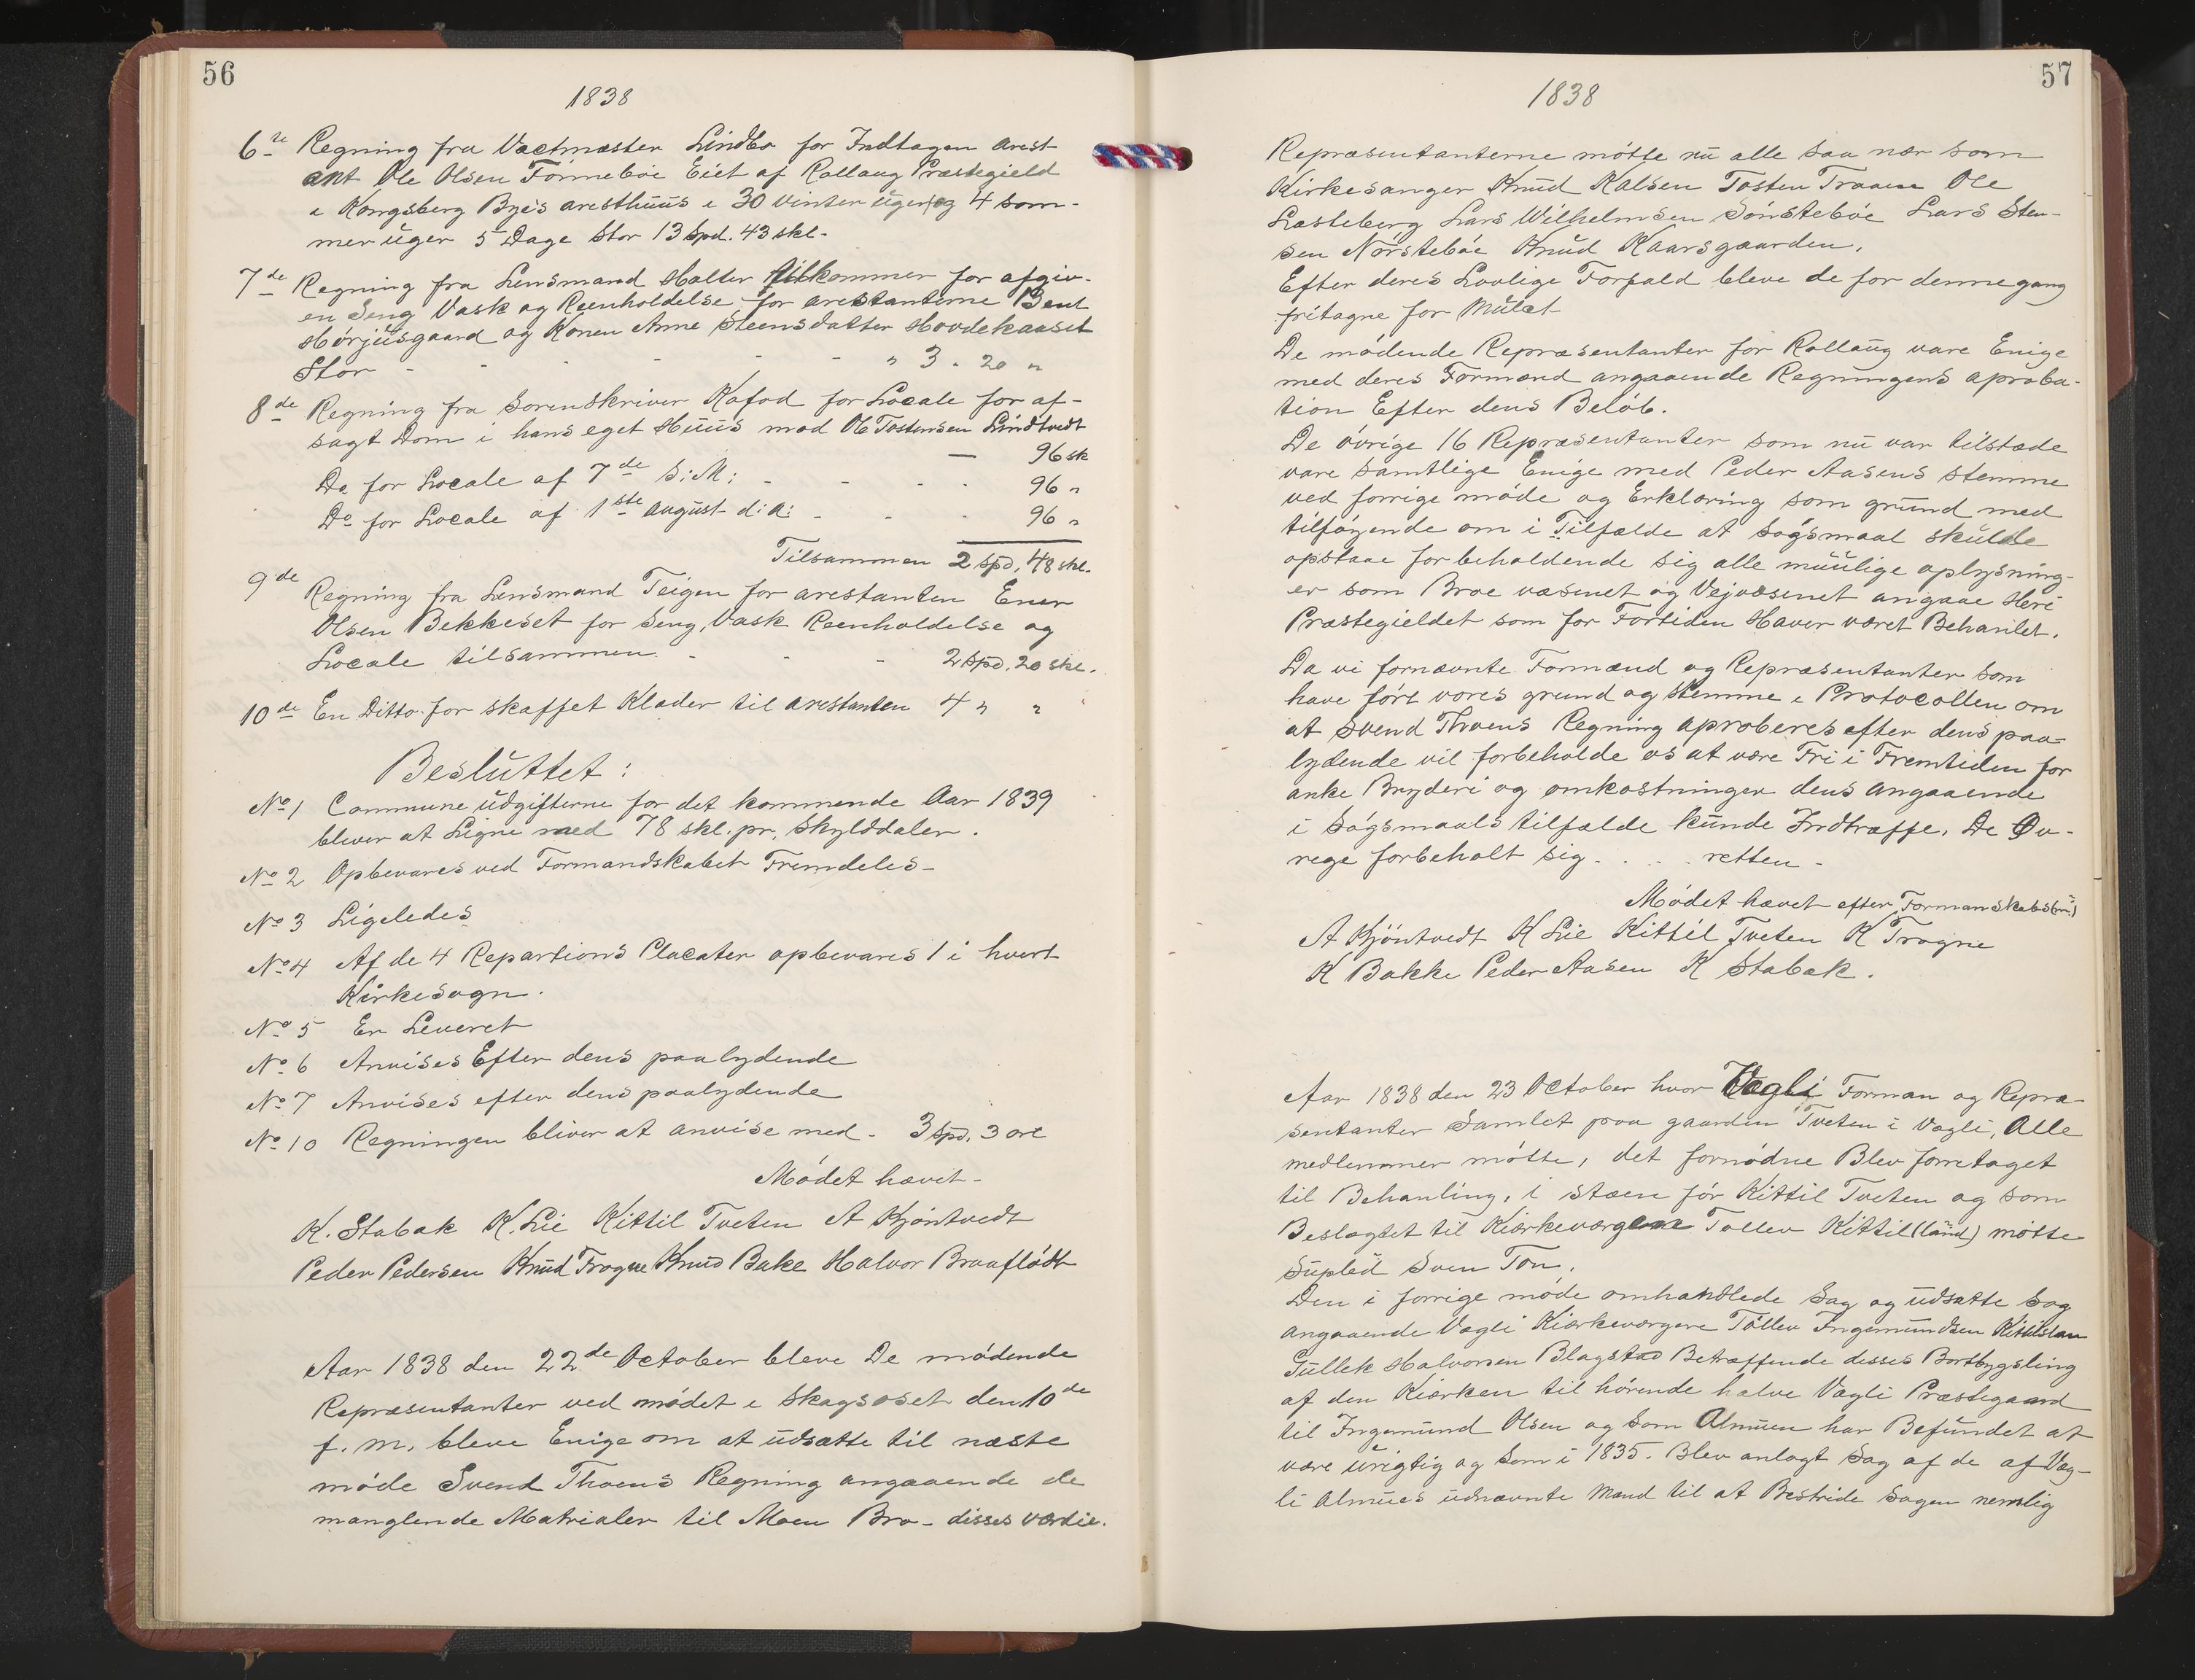 56
1838
6te Regning fra Vactmæster Lindbo for Indtagen arest
ant Ole Olsen Fönneböe Eiet af Rollaug Præstegield
i Kongsberg Byes aresthuus i 30 vinter uger og 4 som-
mer uger 5 Dage Stor 13 Spd. 43 skl.
7de Regning fra Lensmand Halter tilkommer for afgiv-
en Seng Vask og Reenholdelse for arestanterne Bent
Hörjusgaard og Konen Anne Steensdatter Hovdekaaset
Stor - - - - - " 3 . 20 "
8de Regning fra Sorenskriver Kofod for Locale for af-
sagt Dom i hans eget Huus mod Ole Tostensen Lindtvedt
— 96 sk
Do for Locale af 7de S: M: - - - - 96 "
Do for Locale af 1ste august d: A: - - - 96 "
Tilsammen 2 spd. 48 skl.
9de Regning fra Lensmand Teigen for arestanten Ener
Olsen Bekkeset for Seng, Vask Reenholdelse og
Locale tilsammen - - - 2 spd. 20 skl.
10de En Ditto for skaffet Klader til arestanten 4 " "
Besluttet:
No 1 Commune udgifterne for det kommende Aar 1839
bliver at Ligne med 78 skl. pr. Skylddaler.
No 2 Opbevares ved Formandskabet Fremdeles-
No 3 Ligeledes
No 4 Af de 4 Repartions Placater opbevares 1 i hvert
Kirkesogn.
No 5 Er Leveret
No 6 Anvises Efter dens paalydende
No 7 Anvises efter dens paalydende
No 10 Regningen bliver at anvise med - 3 spd. 3 ort
Mödet hævet-
K. Stabak K. Lie Kittil Tveten A Kjöntvedt
Peder Pedersen Knud Frogne Knud Bake Halvor Braaflödt
Aar 1838 den 22de October bleve De mödende
Repræsentanter ved mödet i Skagsoset den 10de
f. m. bleve Enige om at udsætte til næste
möde Svend Thoens Regning angaaende de
manglende Matrialer til Moen Bro- disses værdie.
57
1838
Repræsentanterne mötte nu alle saa nær som
Kirkesanger Knud Kalsen Tosten Traaen Ole
Læsteberg Lars Wilhelmsen Sönsteböe Lars Sten-
sen Nörsteböe Knud Kaarsgaarden.
Efter deres Lovlige Forfald bleve de for denne gang
fritagne for Mulct
De mödende Repræsentanter for Rollaug vare Enige
med deres Formænd angaaende Regningens aproba-
tion Efter dens Belöb.
De övrige 16 Repræsentanter som nu var tilstæde
vare samtlige Enige med Peder Aasens stemme
ved forrige möde og Erklæring som grund med
tilföyende om i Tilfælde at sögsmaal skulde
opstaae forbeholdende sig alle muulige oplysning-
er som Broe væsenet og Vejvæsenet angaae Heri
Præstegieldet som for Fortiden Haver været Behanlet.
Da vi fornævnte Formænd og Repræsentanter som
have fört vores grund og Stemme i Protocollen om
at Svend Thoens Regning aproberes efter dens paa-
lydende vil forbeholde os at være Fri i Fremtiden for
anke Bryderi og omkostninger dens angaaende
i Sögsmaals tilfælde kunde Indtræffe. De Öv-
rege forbeholt sig . . . . retten -
Mödet hævet efter Formanskabs(m:)
A Kjöntvedt K Lie Kittil Tveten K Trogne
K Bakke Peder Aasen K Stabak.
Aar 1838 den 23 October hvor Vægli Forman og Repræ-
sentanter Samlet paa gaarden Tveten i Vægli, Alle
medlemmer mötte, det fornödne Blev forretaget
til Behanling, i stæen för Kittil Tveten og som
Beslægtet til Kiærkeværgeren Tollev Kittil(land) mötte
Supled Sven Ton.
Den i forrige möde omhandlede Sag og udsatte Sag
angaaende Vægli Kiærkeværgere Tollev Ingemundsen Kittilslan
Gullek Halvorsen Blagstad Betræffende disses Bortbygsling
af den Kiærken til hörende halve Vægli Præstegaard
til Ingemund Olsen og Som Almuen har Befundet at
være urigtig og Som i 1835. Blev anlagt Sag af de af Væg-
li Almues udnævnte Mænd til at Bestride Sagen nemlig